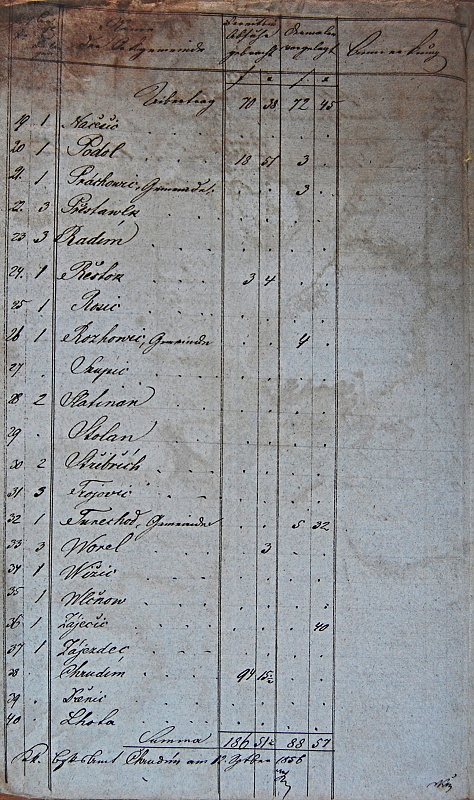 Name der Ortsgemeinde Bereits in Abfuhr gebracht Dermalen vorgelegt Anmerkung
f x f x
Übertrag 70 38 72 45
19 1 Načešic
20 1 Podol 18 51 3 .
21. 1 Prachowic, Gemeinde 3 .
22. 3 Přestawlk
23 3 Radim
24. 1 Řestok 3 4
25 1 Rosic
26 1 Rozhowic, Gemeinde 4 .
27 . Skupic
28 2 Slatinan
29 . Stolan
30 2 Stříbřich
31 3 Trojovic
32 1 Tunechod, Gemeinde 5 32
33 3 Worel . 3
34 1 Wižic
35 1 Wlčnow
36 1 Zaječic . 40
37 1 Zájezdec
38 . Chrudim 94 15 2
39 .
40 Lhota
Summa 186 51 2 88 57
Chrudim am 12 1856